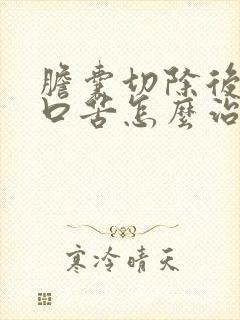 膽囊切除後
口苦怎麼治
寒冷晴天